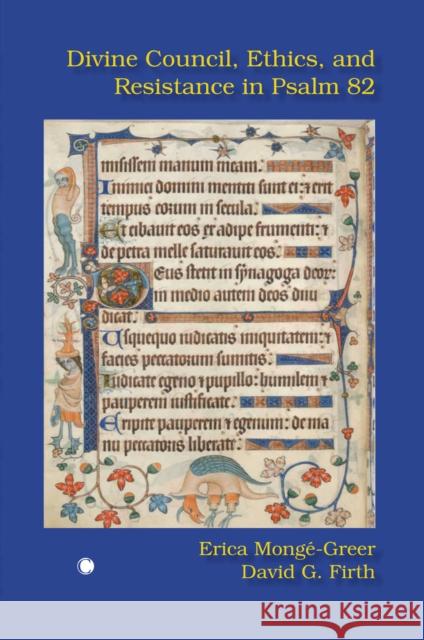 Divine Council, Ethics, and
Resistance in Psalm 82
misissem manum meam:
Inimici domini mentiti sunt ei: ⁊ erit
tempus eorum in secula.
Et cibauit eos ex adipe frumenti: ⁊
de petra melle saturauit eos.
Deus stetit in synagoga deor:
in medio autem deos diiu
dicat.
Usquequo iudicatis iniquitatem: ⁊
facies peccatorum sumitis.
Iudicate egeno ⁊ pupillo: humilem ⁊
pauperem iustificate.
Eripite pauperem ⁊ egenum: de ma
nu peccatoris liberate.
Erica Mongé-Greer
David G. Firth